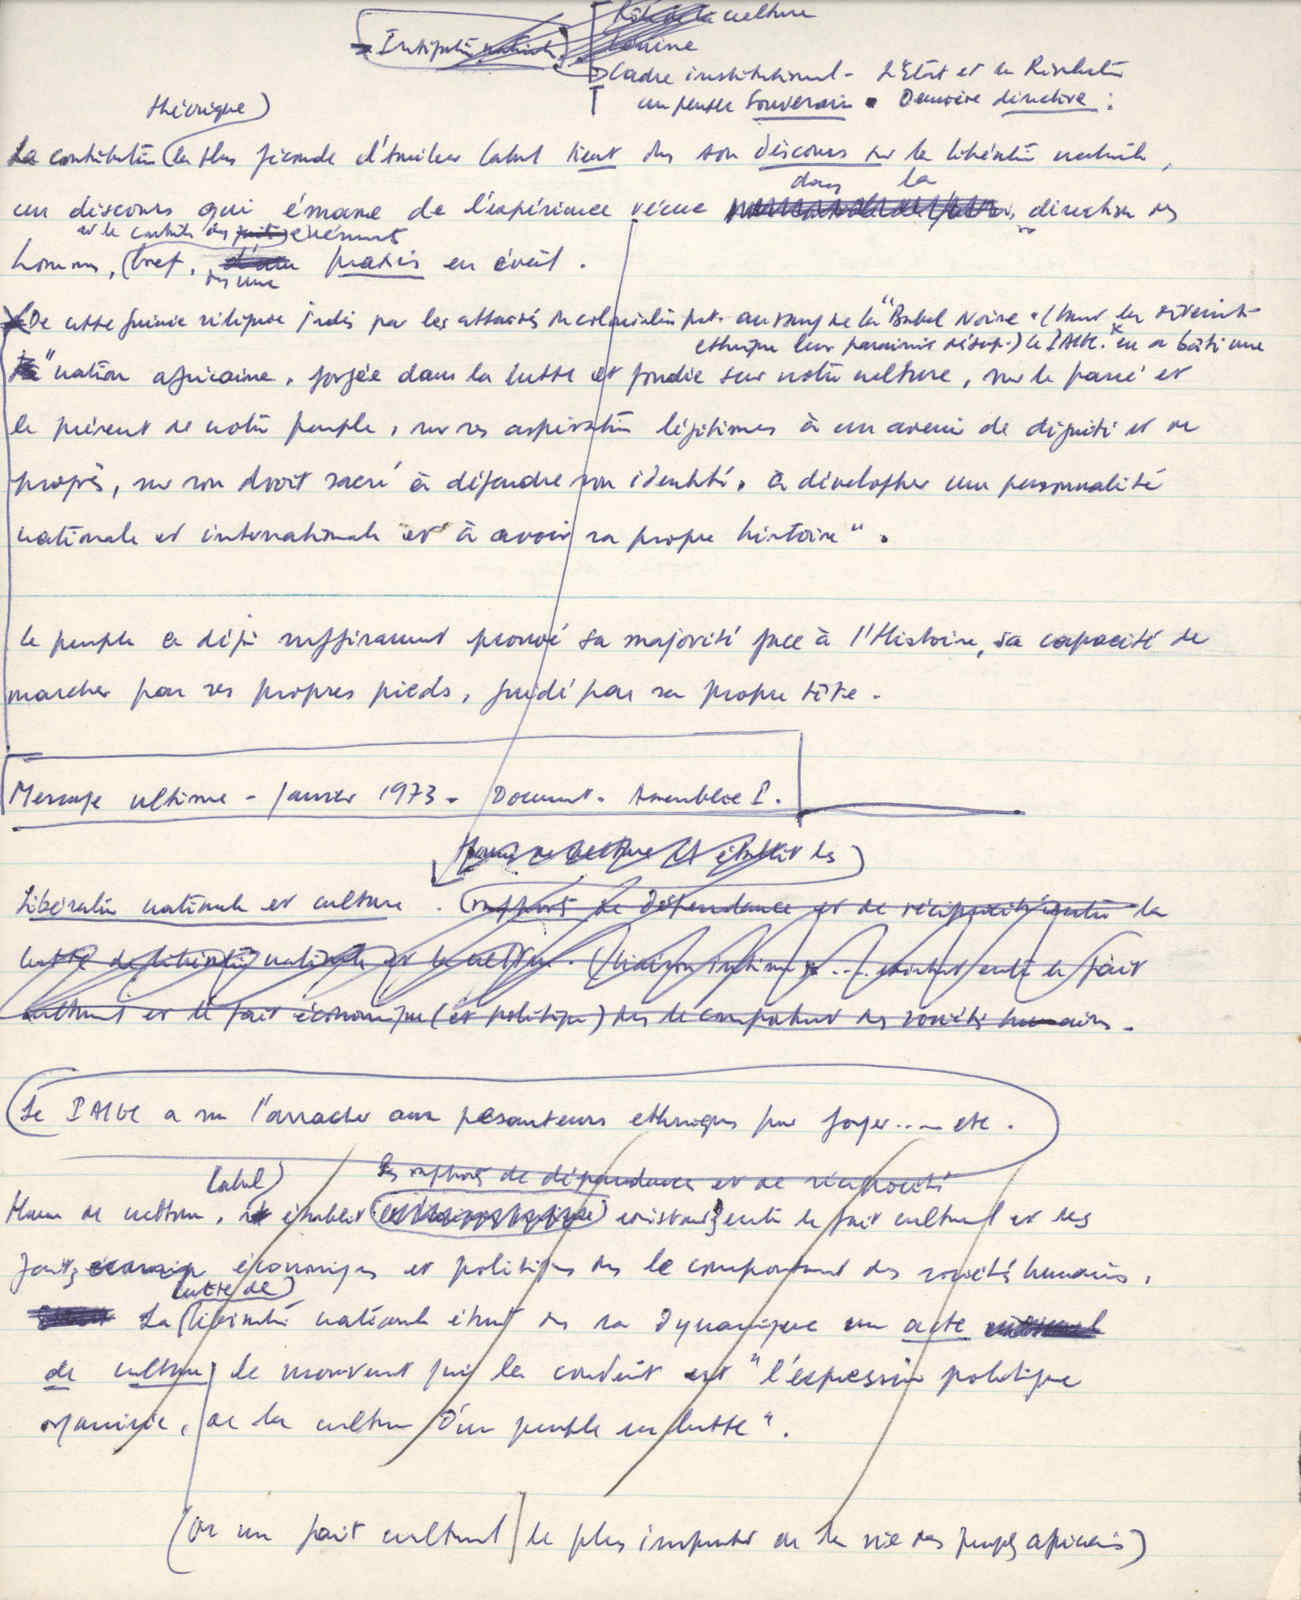 Rôle de la culture
Institution nationale
Cadre institutionnel - L'État et la Révolution
un penser Souverain . Dernière directive :
théorique
La contribution la plus féconde d'Amilcar Cabral tient ds son discours sur la libération nationale,
dans la
un discours qui émane de l'expérience vécue direction des
et le contrôle des événements
hommes, bref, praxis en éveil.
ds une
De cette Guinée reléguée jadis par les attardés du colonialisme port. au rang de la "Babel Noire" (pour la diversité
ethnique leur paraissait désesp.) le PAIGC en a bâti une
"nation africaine, forgée dans la lutte et fondée sur notre culture, sur le passé et
le présent de notre peuple, sur ses aspirations légitimes à un avenir de dignité et de
progrès, sur son droit sacré à défendre son identité, à développer une personnalité
nationale et internationale et à avoir sa propre histoire".
le peuple a déjà suffisamment prouvé sa majorité face à l'Histoire, sa capacité de
marcher par ses propres pieds, guidé par sa propre tête.
Message ultime - Janvier 1973 - Document - Assemblée
homme de culture et établit les
Libération nationale et culture . rapports de dépendance et de réciprocité entre la
lutte de libération nationale et la culture. (liaison intime ... existant entre le fait
culturel et le fait économique (et politique) ds le comportement des sociétés humaines.
Le PAIGC a su l'arracher aux pesanteurs ethniques pour forger .... etc.
Cabral les rapports de dépendance et de réciprocité
Homme de culture, établit existant entre le fait culturel et les
faits économiques et politiques ds le comportement des sociétés humaines.
lutte de
La libération nationale étant ds sa dynamique un acte
de culture, le mouvement qui la conduit est "l'expression politique
organisée, de la culture d'un peuple en lutte".
(Or un fait culturel le plus important de la vie des peuples africains)